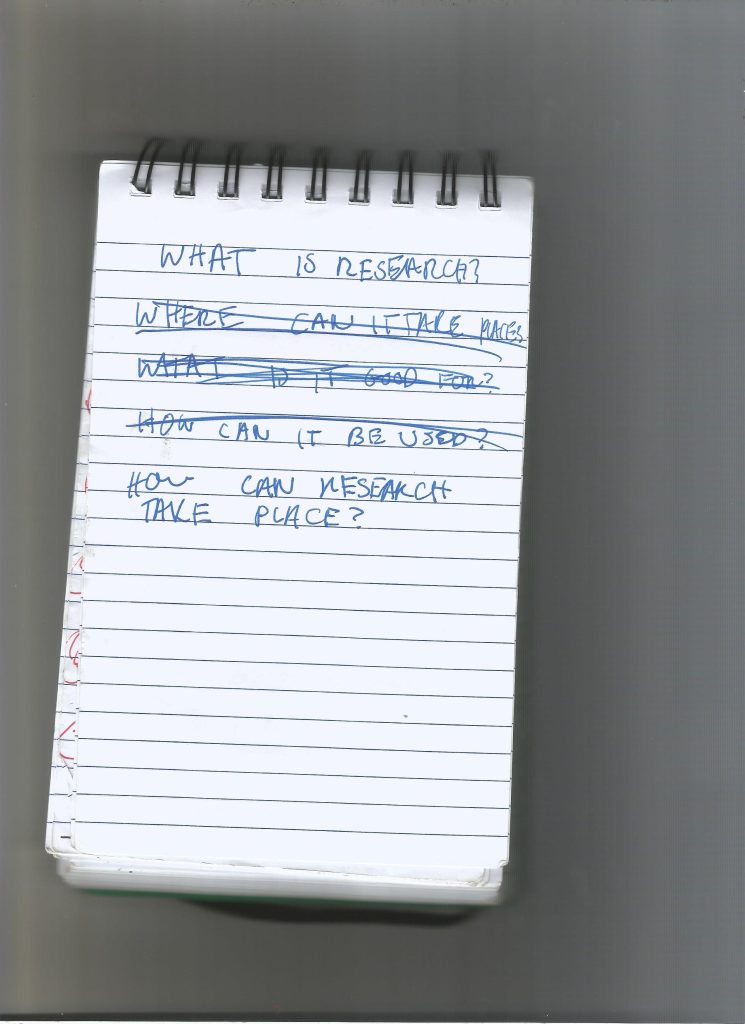 WHAT IS RESEARCH?
WHERE CAN IT TAKE PLACES
WHAT IS IT GOOD FOR?
HOW CAN IT BE USED?
HOW CAN RESEARCH
TAKE PLACE?